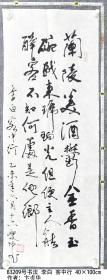 蘭陵美酒鬱金香玉
碗盛來琥珀光但使主人能
醉客不知何處是他鄉
李白客中行 乙未年
83209号书法 李白 客中行 40×100cm
作者: